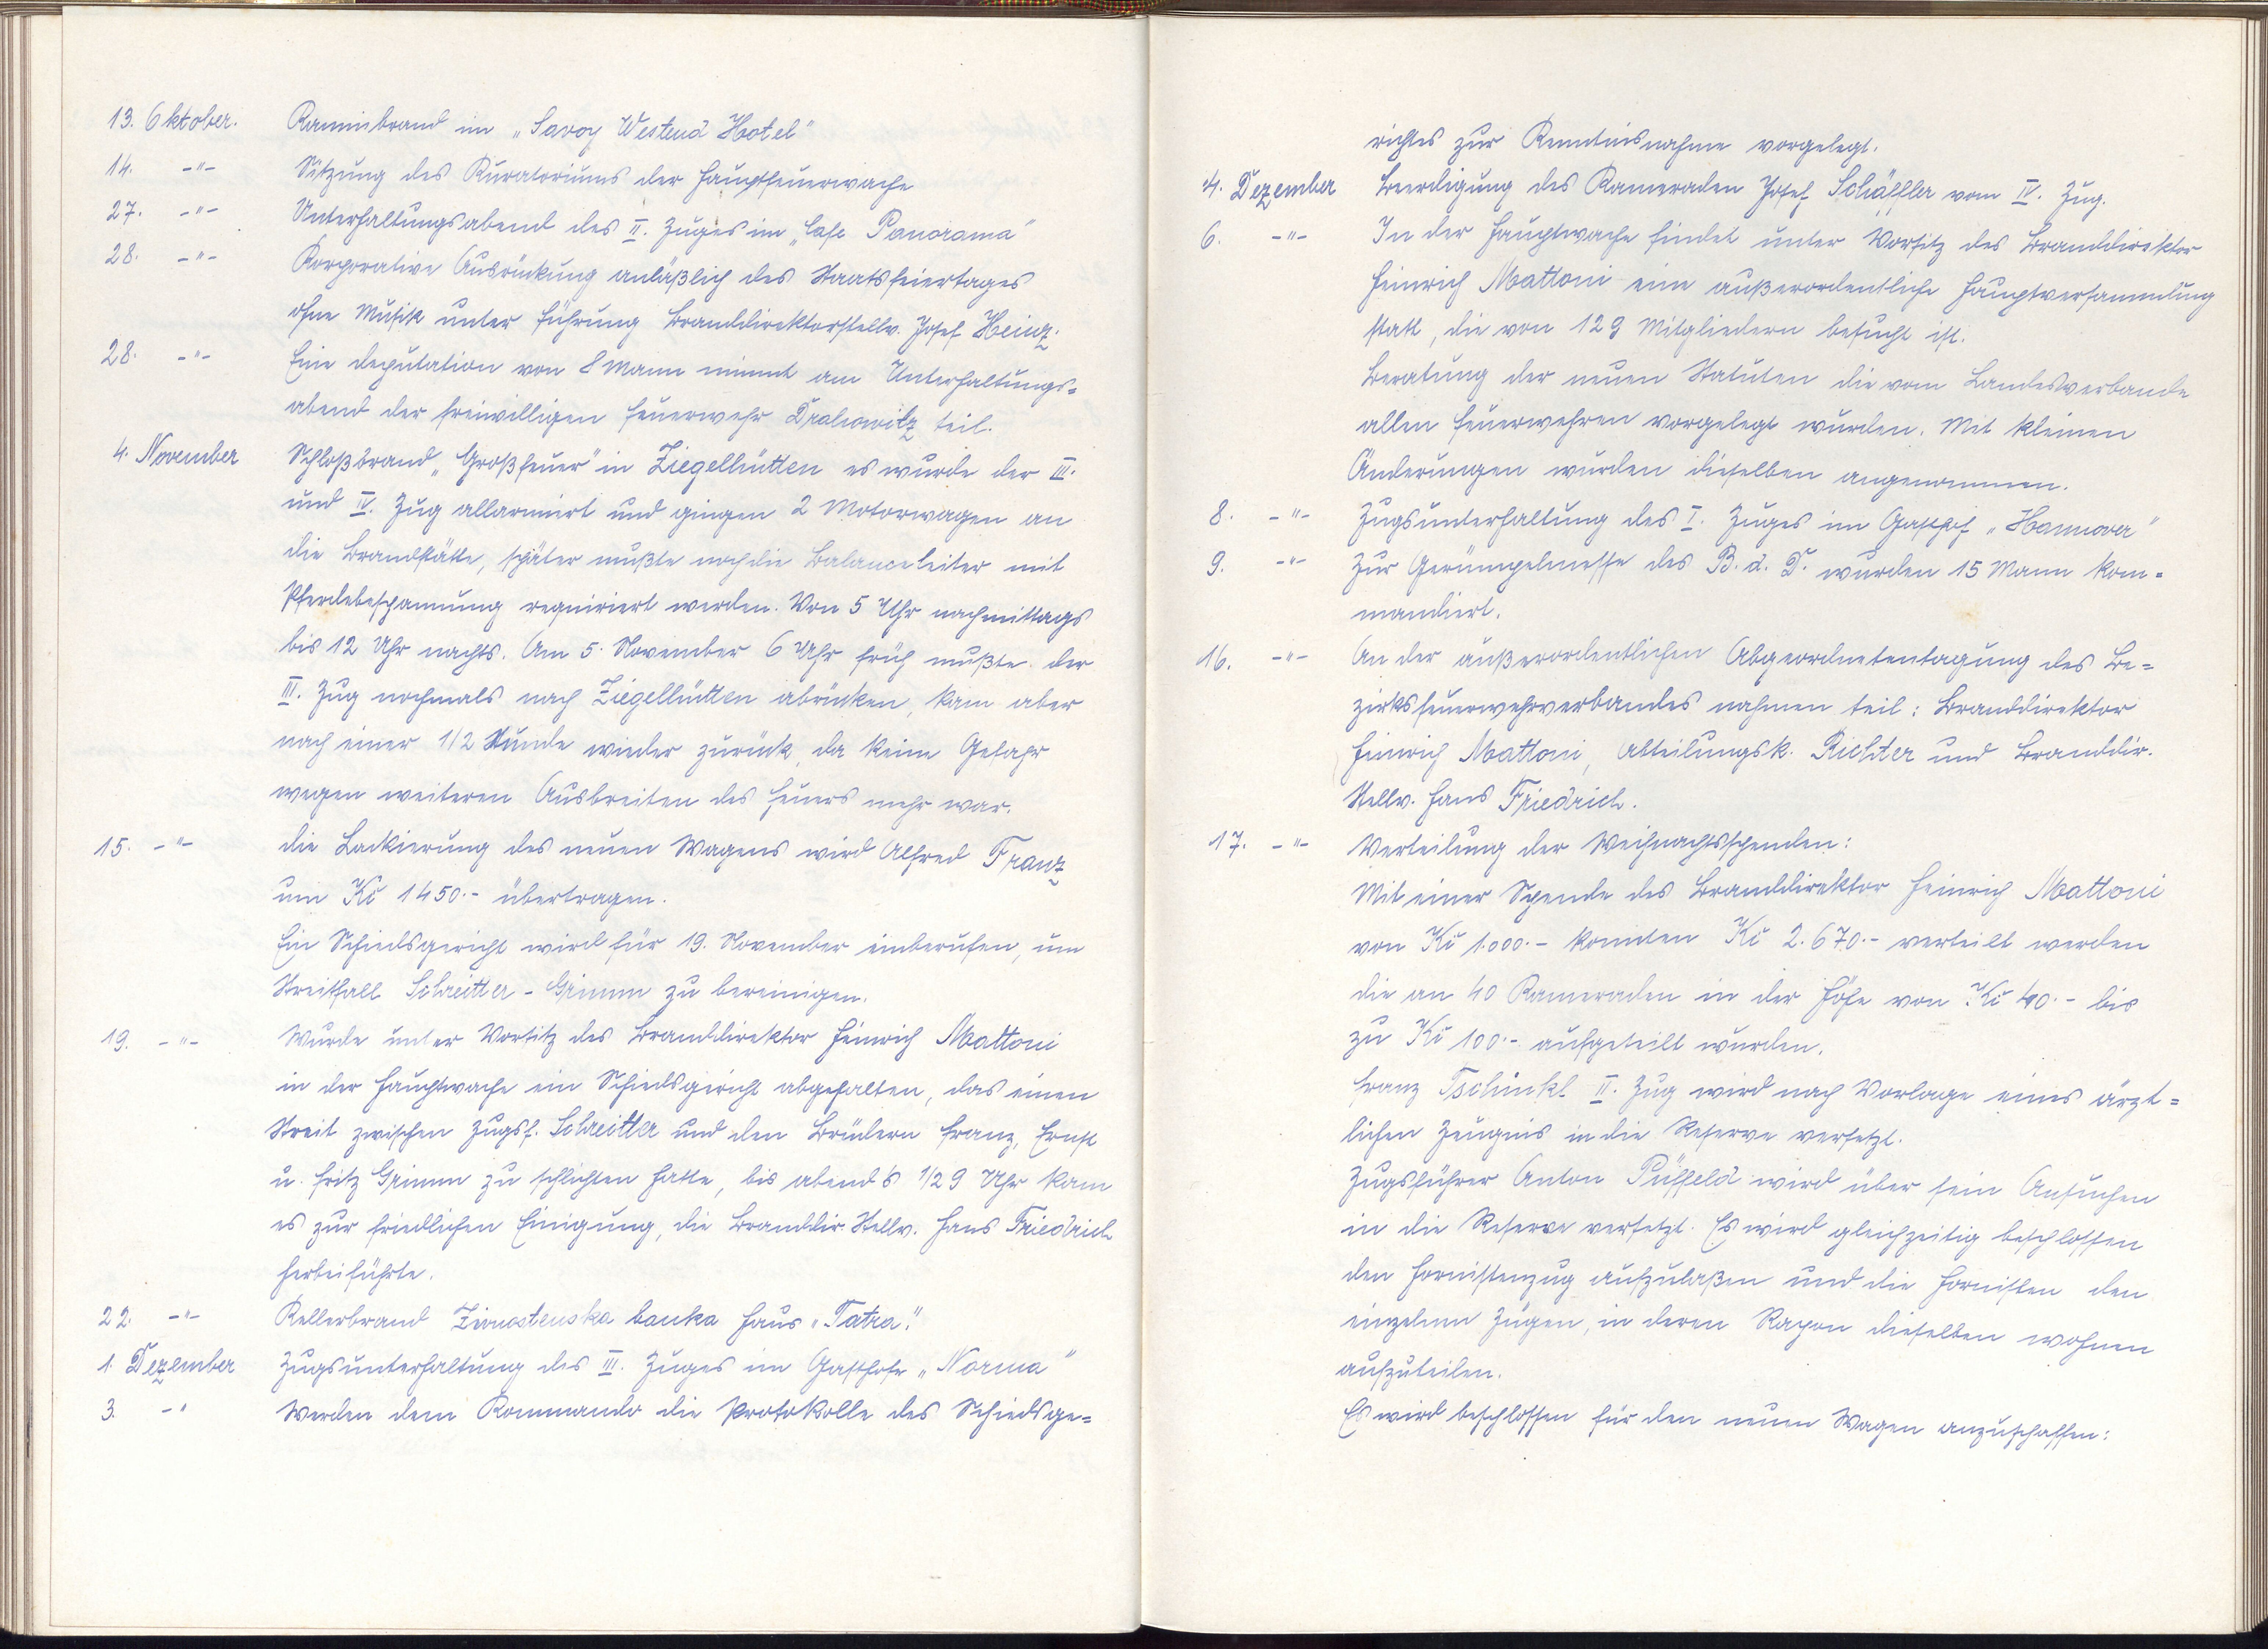 13. Oktober. Kaminbrand im „Savoy Westend Hotel"
14. -"- Sitzung des Kuratoriums der Hauptfeuerwache
27. -"- Unterhaltungsabend des II. Zuges im „Cafe Panorama"
28. -"- Korporative Ausrückung anläßlich des Staatsfeiertages
ohne Musik unter Führung Branddirektorstellv. Josef Heinz.
28. -"- Eine Deputation von 8 Mann nimmt am Unterhaltungs=
abend der freiwilligen Feuerwehr Drahowitz teil.
4. November Schloßbrand „Großfeuer" in Ziegelhütten es wurde der III.
und IV. Zug allarmiert und gingen 2 Motorwagen an
die Brandstätte, später mußte noch die Balanceleiter mit
Pferdebespannung requiriert werden. Von 5 Uhr nachmittags
bis 12 Uhr nachts. Am 5. November 6 Uhr früh mußte der
III. Zug nochmals nach Ziegelhütten abrücken, kam aber
nach einer 1/2 Stunde wieder zurück, da keine Gefahr
wegen weiteren Ausbreiten des Feuers mehr war.
15. -"- Die Lackierung des neuen Wagens wird Alfred Franz
um Kč 1450.- übertragen.
Ein Schiedsgericht wird für 19. November einberufen, um
Streitfall Schreitter - Grimm zu bereinigen.
19. -"- Wurde unter Vorsitz des Branddirektor Heinrich Mattoni
in der Hauptwache ein Schiedsgericht abgehalten, das einen
Streit zwischen Zugsf. Schreitter und den Brüdern Franz, Ernst
u. Fritz Grimm zu schlichten hatte, bis abends 1/2 9 Uhr kam
es zur friedlichen Einigung, die Branddir. Stellv. Hans Friedrich
herbeiführte.
22. -"- Kellerbrand Zivnostenska banka Haus „Tatra".
1. Dezember Zugsunterhaltung des III. Zuges im Gasthofe „Norma"
3. -" Werden dem Kommando die Protokolle des Schiedsge=
richtes zur Kenntnisnahme vorgelegt.
4. Dezember Beerdigung des Kameraden Josef Schäffler vom IV. Zug.
6. -"- In der Hauptwache findet unter Vorsitz des Branddirektor
Heinrich Mattoni eine außerordentliche Hauptversammlung
statt, die von 129 Mitgliedern besucht ist.
Beratung der neuen Statuten die vom Landesverbande
allen Feuerwehren vorgelegt wurden. Mit kleinen
Änderungen wurden dieselben angenommen.
8. -"- Zugsunterhaltung des I. Zuges im Gasthof „Hannover"
9. -"- Zur Gerümpelmesse des B. d. D. wurden 15 Mann kom=
mandiert.
16. -"- An der außerordentlichen Abgeordnetentagung des Be=
zirksfeuerwehrverbandes nahmen teil: Branddirektor
Heinrich Mattoni, Abteilungsk. Richter und Branddir.
Stellv. Hans Friedrich.
17. -"- Verteilung der Weihnachtsspenden:
Mit einer Spende des Branddirektor Heinrich Mattoni
von Kč 1.000.- konnten Kč 2.670.- verteilt werden
die an 40 Kameraden in der Höhe von Kč 40.- bis
zu Kč 100.- aufgeteilt wurden.
Franz Tschinkl II. Zug wird nach Vorlage eines ärzt=
lichen Zeugnis in die Reserve versetzt.
Zugsführer Anton Püffeld wird über sein Ansuchen
in die Reserve versetzt. Es wird gleichzeitig beschlossen
den Hornistenzug aufzulaßen und die Hornisten den
einzelnen Zügen, in deren Rayon dieselben wohnen
aufzuteilen.
Es wird beschlossen für den neuen Wagen anzuschaffen: